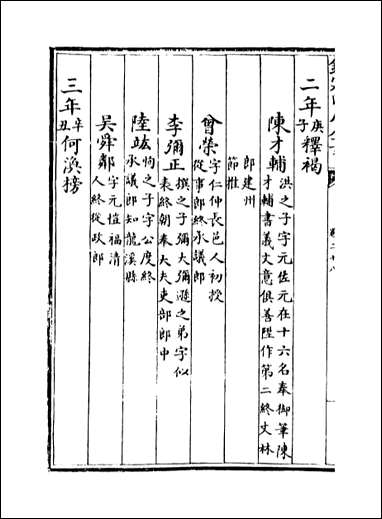 二年庚子釋褐
陳才輔洪之子字元佐元在十六名奉御筆陳
才輔書義文意俱善陞作第二終文林
郎建州
節推
曾榮字仁仲長邑人初授
從事郎終承議郎
李彌正撰之子彌大彌遜之弟字似
表終朝奉大夫吏部郎中
陸竑恂之子字公度終
承議郎知龍溪縣
吳舜鄰字元愷福清
人終從政郎
三年辛丑何渙榜